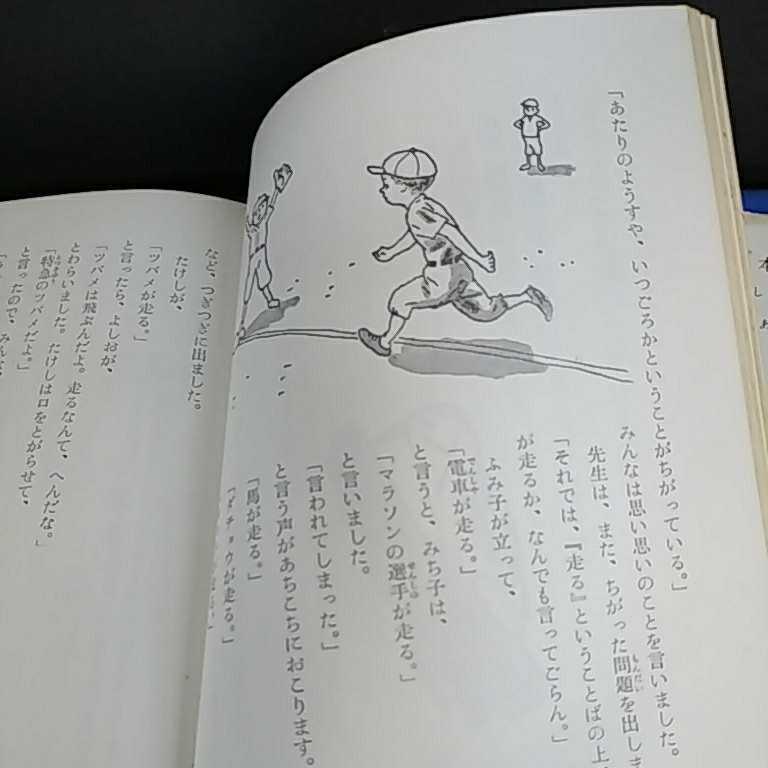 「あたりのようすや、いつごろかということがちがっている。」
みんなは思い思いのことを言いました。
先生は、また、ちがった問題を出しま
「それでは、『走る』ということばの上、
が走るか、なんでも言ってごらん。」
ふみ子が立って、
「電車が走る。」
と言うと、みち子は、
「マラソンの選手が走る。」
と言いました。
「言われてしまった。」
と言う声があちこちにおこります。
「馬が走る。」
「ダチョウが走る。」
など、つぎつぎに出ました。
たけしが、
「ツバメが走る。」
と言ったら、よしおが、
「ツバメは飛ぶんだよ。走るなんて、へんだな。」
とわらいました。たけしは口をとがらせて、
「特急のツバメだよ。」
と言ったので、みんな